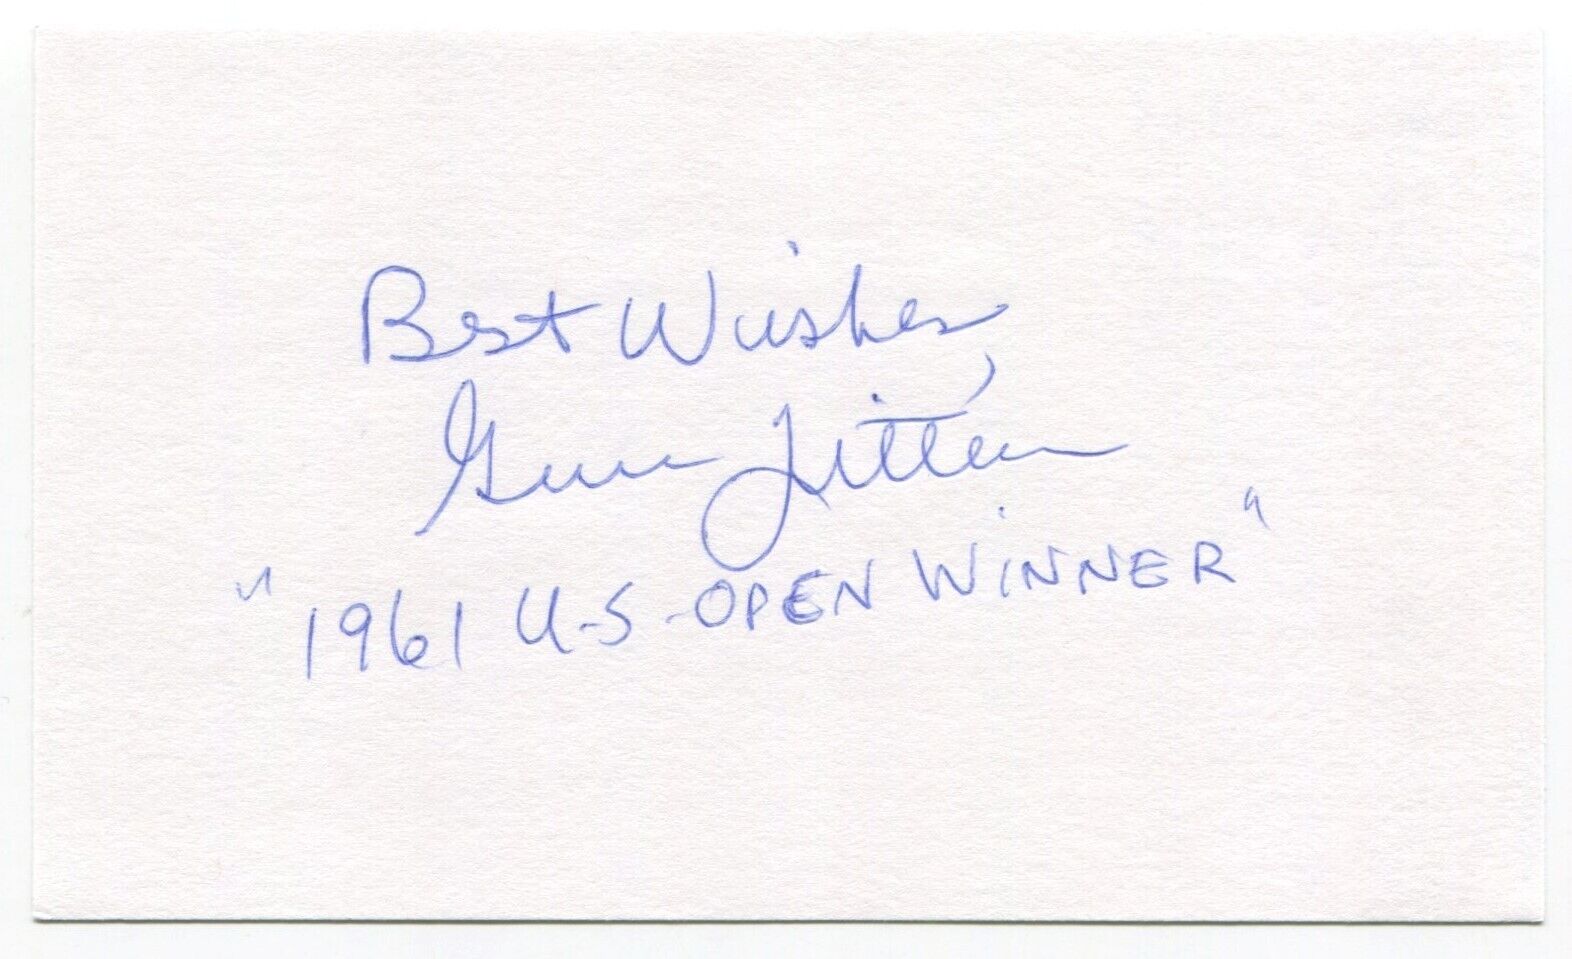 Best Wishes,
Gene Littler
"1961 U.S. OPEN WINNER"